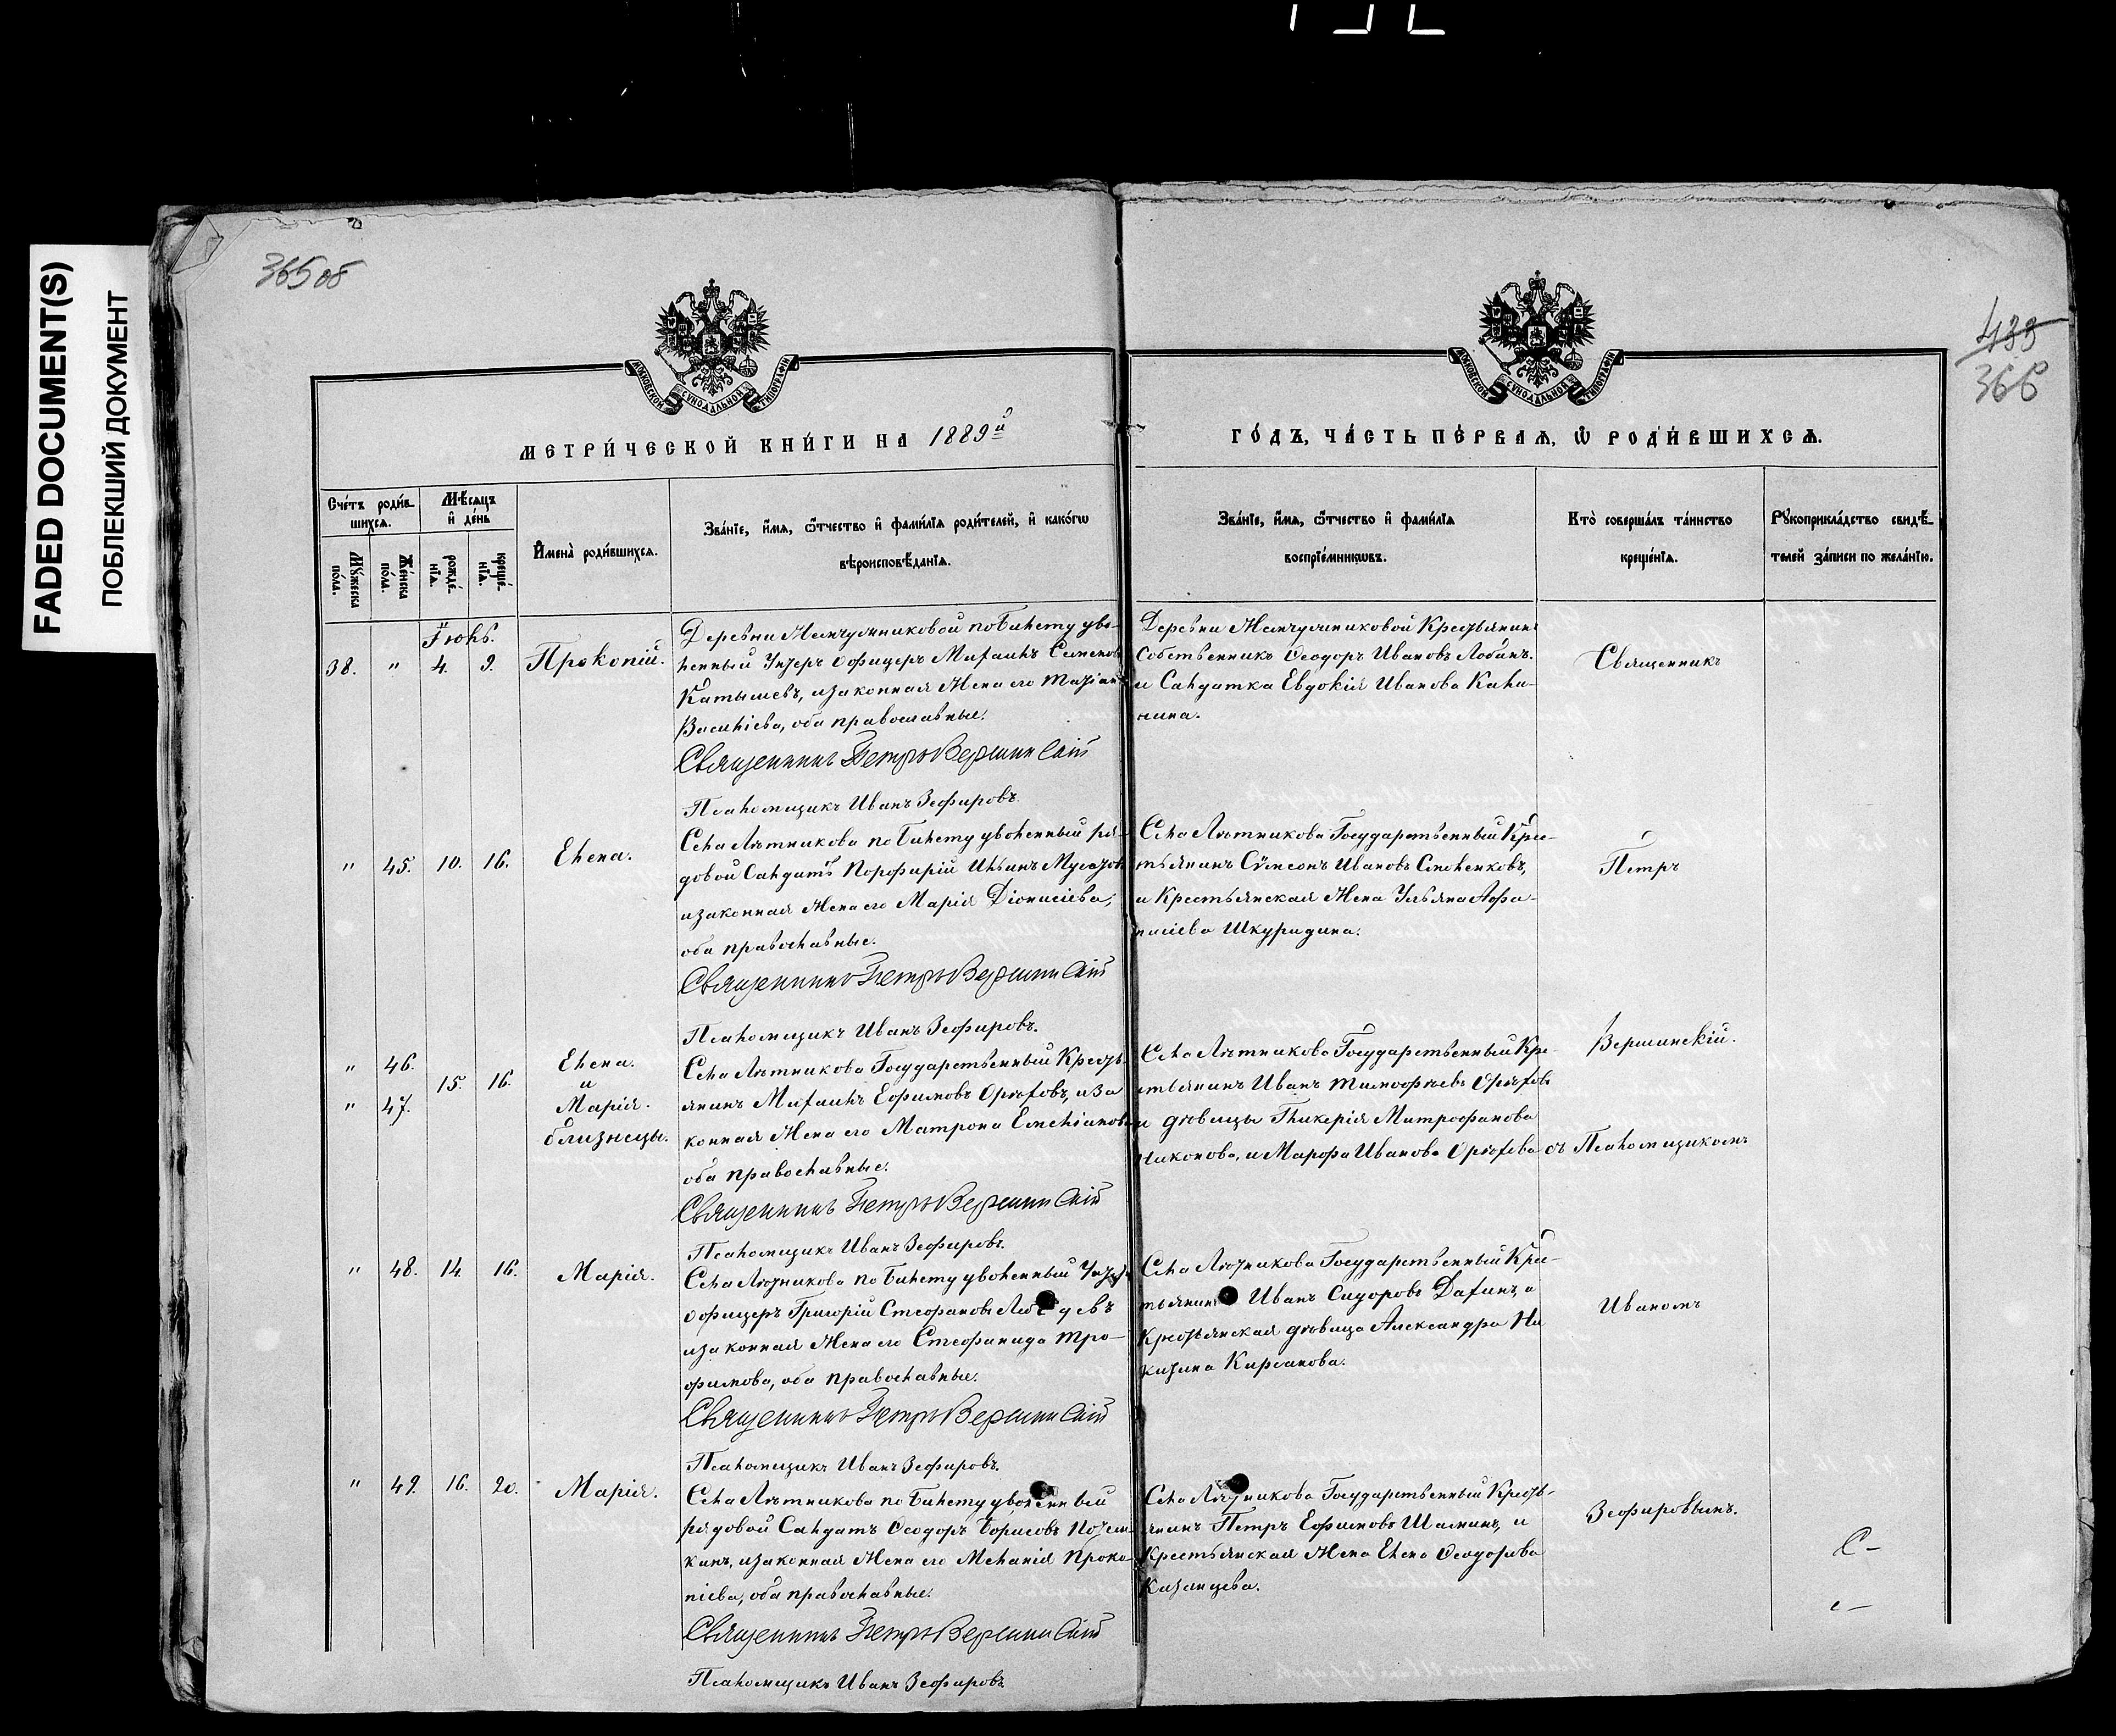 FADED DOCUMENT(S)
ПОБЛЕКШИЙ ДОКУМЕНТ
365 об
433
366
МОСКОВСКОЙ СѴНОДАЛЬНОЙ ТИПОГРАФІИ
МОСКОВСКОЙ СѴНОДАЛЬНОЙ ТИПОГРАФІИ
МЕТРИ́ЧЕСКОЙ КНИ́ГИ НА 1889й
ГО́ДЪ, ЧА́СТЬ ПЕ́РВАѦ, Ѡ҆ РОДИ́ВШИХСѦ.
Сче́тъ роди́в-
шихсѧ.
Мѣ́сѧцъ
и҆ де́нь
Мꙋ́жеска
по́ла.
Же́нска
по́ла.
рожде́-
нїѧ.
креще́-
нїѧ.
И҆мена̀ роди́вшихсѧ.
Зва́нїе, и҆́мѧ, ѻ҆́тчество и҆ фами́лїѧ роди́телей, и҆ како́гѡ
вѣроисповѣ́данїѧ.
Зва́нїе, и҆́мѧ, ѻ҆́тчество и҆ фами́лїѧ
воспрїе́мникѡвъ.
Кто̀ соверша́лъ та́инство
креще́нїѧ.
Рꙋкоприкла́дство свидѣ́-
телей за́писи по жела́нїю.
Іюнь.
38. " 4. 9. Прокопій.
Деревни Жемчужниковой по билету уво-
ленный Унтеръ офицеръ Михаилъ Семеновъ
Катышевъ, и законная жена его
Василіева, оба православные.
Священникъ Петръ Вершинскій
Псаломщикъ Иванъ Зефировъ.
Деревни Жемчужниковой Крестьянинъ
Собственникъ Ѳеодоръ Ивановъ Лобанъ.
и Салдатка Евдокія Иванова Кали-
нина.
Священникъ
" 45. 10. 16. Елена.
Села Лѣтникова по билету уволенный ря-
довой Салдатъ Порфирій Ильинъ
и законная жена его Марія Діонисіева,
оба православные.
Священникъ Петръ Вершинскій
Псаломщикъ Иванъ Зефировъ.
Села Лѣтникова Государственный Кре-
стьянинъ Сѵмеонъ Ивановъ Смоленковъ,
и Крестьянская жена Ульяна Афа-
насіева Шкуридина.
Петръ
" 46.
" 47.
15. 16.
Елена.
и
Марія.
близнецы.
Села Лѣтникова Государственный Кресть-
янинъ Михаилъ Ефимовъ Орѣховъ, и за
конная жена его Матрона Емеліанова
оба православные.
Священникъ Петръ Вершинскій
Псаломщикъ Иванъ Зефировъ.
Села Лѣтникова Государственный Кре-
стьянинъ Иванъ Тимофѣевъ Орѣховъ
и дѣвицы Гликерія Митрофанова
Никонова, и Марфа Иванова Орѣхова
Вершинскій.
съ Псаломщикомъ
" 48. 14. 16. Марія.
Села Лѣтникова по билету уволенный Унтеръ
офицеръ Григорій Стефановъ
и законная жена его Стефанида Тро-
фимова, оба православные.
Священникъ Петръ Вершинскій
Псаломщикъ Иванъ Зефировъ.
Села Лѣтникова Государственный Кре-
стьянинъ Иванъ Сидоровъ Дахинъ, и
Крестьянская дѣвица Александра Ни
китина Кирсанова.
Иваномъ
" 49. 16. 20. Марія.
Села Лѣтникова по билету уволенный
рядовой Салдатъ Ѳеодоръ Борисовъ Потем-
кинъ, и законная жена его Меланія Проко-
піева, оба православные.
Священникъ Петръ Вершинскій
Псаломщикъ Иванъ Зефировъ
Села Лѣтникова Государственный Кресть-
янинъ Петръ Ефимовъ Шаминъ, и
Крестьянская жена Елена Ѳеодорова
Казанцева.
Зефировымъ.